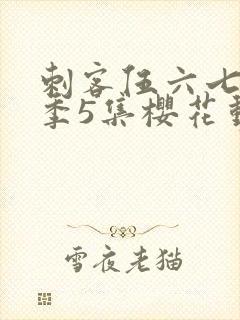 刺客伍六七
季5集樱花
雪夜老猫